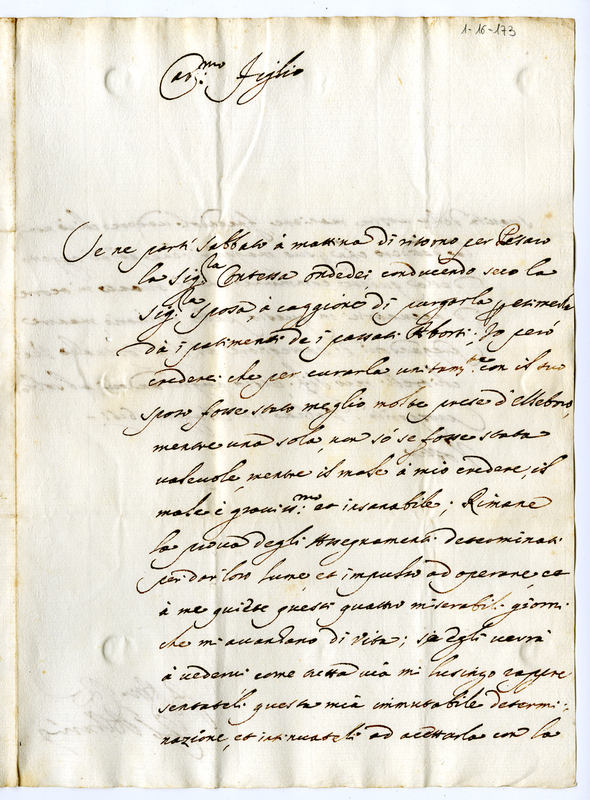 1-16-173
Car.mo Figlio
Se ne partì Sabbato à mattina di ritorno per Pesaro
la Sig.la Contessa Ondedei conducendo seco la
Sig.la Sposa, à caggione di purgarla
dà i patimenti de i passati Aborti; Io però
crederei che per curarla unitam.te con il suo
sposo fosse stato meglio molte prese d'Elleboro,
mentre una sola, non sò se fosse stata
valevole, mentre il male à mio credere, il
male è graviss.mo et insanabile; Rimane
la prova degli Assegnamenti determinati
per dar loro lume, et impulso ad operare, et
à me quiete questi quattro miserabili giorni
che mi avanzano di Vita; s'Egli verrà
à vedervi come detta via mi lusingo rappre
sentateli questa mia immutabile determi-
nazione, et insinuateli ad accettarla con la